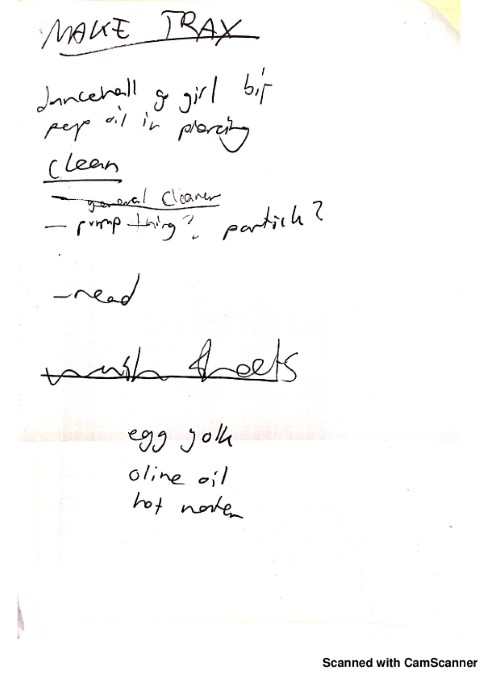 MAKE TRAX
dancehall go girl bit
pep oil in piercing
clean
- general cleaner
- pump thing? partich?
- read
wash sheets
egg yolk
oline oil
hot water
Scanned with CamScanner